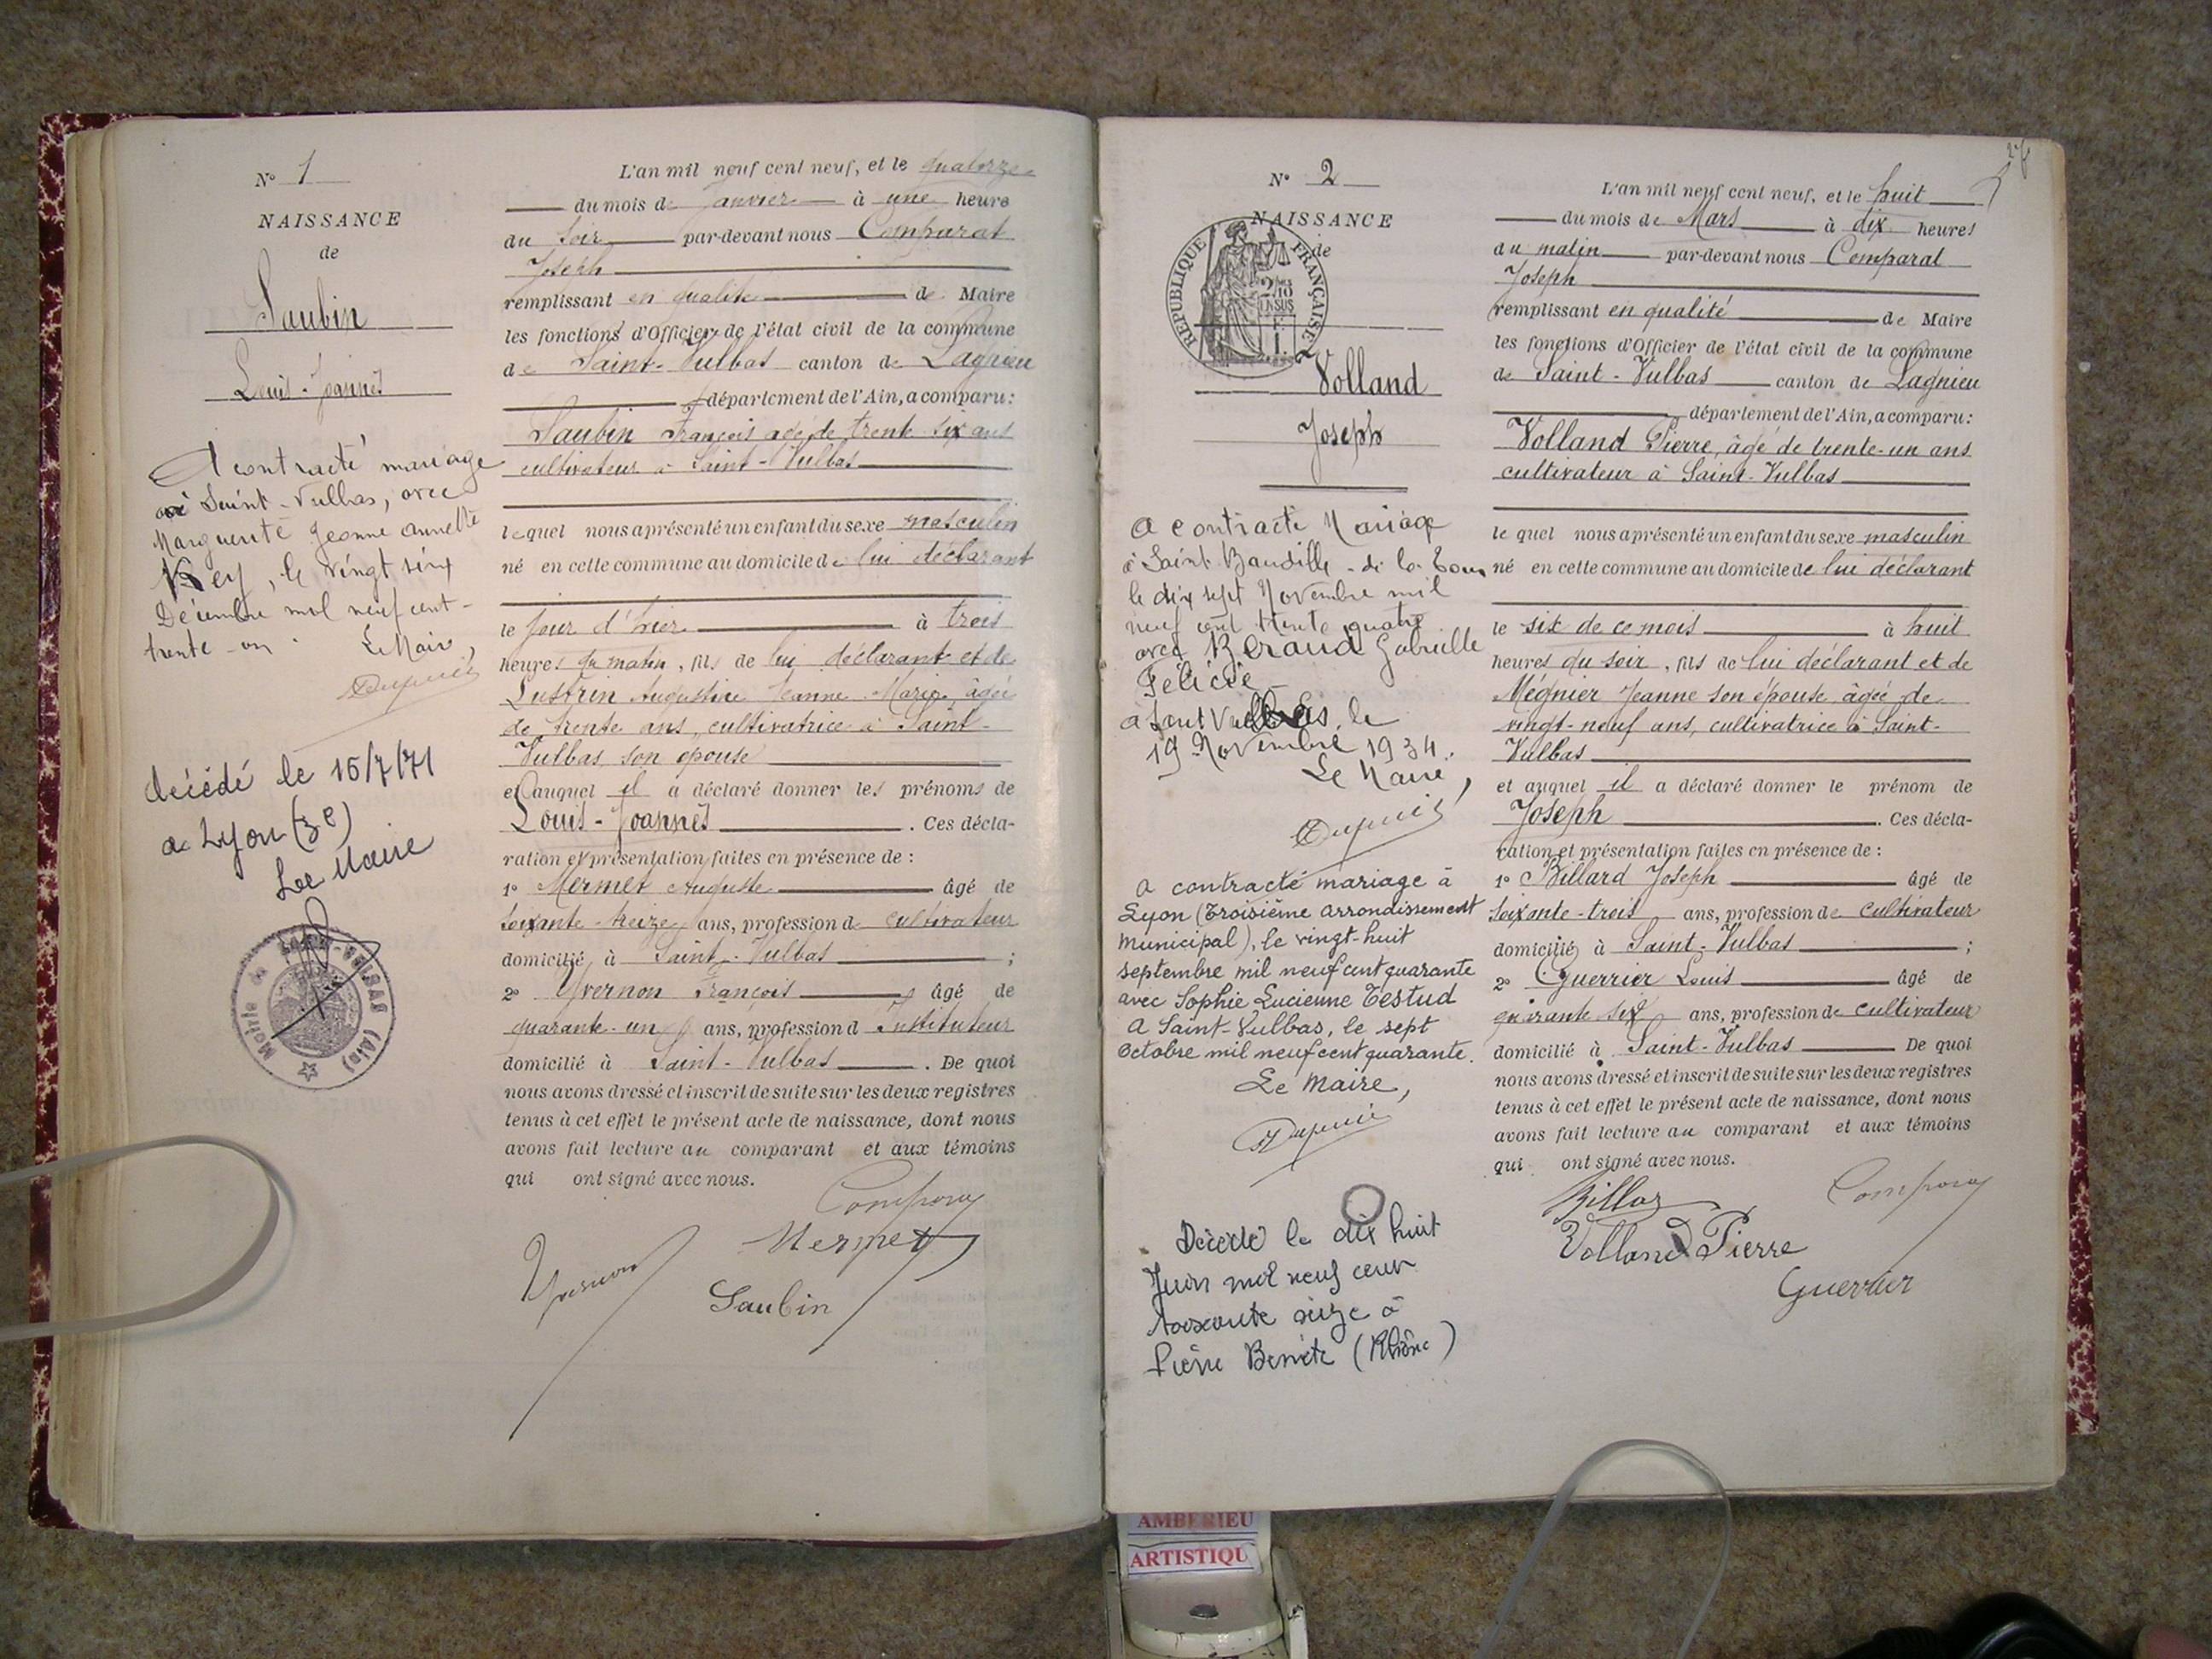 N° 1
NAISSANCE
de
Saubin
Louis-Joannès
A contracté mariage
à Saint-Vulbas, avec
Marguerite Jeanne Annette
Rey, le vingt six
Décembre mil neuf cent-
trente-un. Le Maire,
Dupuis
décédé le 15/7/71
a Lyon (3e)
Le Maire
Mairie de SAINT-VULBAS (Ain)
L'an mil neuf cent neuf, et le quatorze
du mois de Janvier à une heure
du soir par-devant nous Comparat
Joseph
remplissant en qualité de Maire
les fonctions d'Officier de l'état civil de la commune
de Saint-Vulbas canton de Lagnieu
département de l'Ain, a comparu:
Saubin François agé de trente six ans
cultivateur à Saint-Vulbas
lequel nous a présenté un enfant du sexe masculin
né en cette commune au domicile de lui déclarant
le jour d'hier à trois
heures du matin, fils de lui déclarant et de
Lustrin Augustine Jeanne Marie âgée
de trente ans, cultivatrice à Saint-
Vulbas son épouse
et auquel il a déclaré donner les prénoms de
Louis-Joannès. Ces décla-
ration et présentation faites en présence de :
1° Mermet Auguste âgé de
soixante-treize ans, profession de cultivateur
domicilié à Saint-Vulbas ;
2° Yvernon François âgé de
quarante-un ans, profession d Instituteur
domicilié à Saint-Vulbas. De quoi
nous avons dressé et inscrit de suite sur les deux registres
tenus à cet effet le présent acte de naissance, dont nous
avons fait lecture au comparant et aux témoins
qui ont signé avec nous.
Comparat
Yvernon Mermet
Saubin
N° 2
NAISSANCE
de
REPUBLIQUE FRANÇAISE
2/10 EN SUS
Volland
Joseph
a contracté Mariage
à Saint Baudille - de la Tour
le dix sept Novembre mil
neuf cent trente quatre
avec Beraud Gabrielle
Félicie
à Saint Vulbas, le
19 Novembre 1934.
Le Maire,
Dupuis
a contracté mariage à
Lyon (Troisième arrondissement
municipal), le vingt-huit
septembre mil neuf cent quarante
avec Sophie Lucienne Testud
A Saint-Vulbas, le sept
octobre mil neuf cent quarante.
Le Maire,
Dupuis
Décédé le dix huit
Juin mil neuf cent
soixante seize à
Pierre Bénite (Rhône)
L'an mil neuf cent neuf, et le huit
du mois de Mars à dix heures
du matin par-devant nous Comparat
Joseph
remplissant en qualité de Maire
les fonctions d'Officier de l'état civil de la commune
de Saint-Vulbas canton de Lagnieu
département de l'Ain, a comparu:
Volland Pierre, âgé de trente-un ans
cultivateur à Saint-Vulbas
le quel nous a présenté un enfant du sexe masculin
né en cette commune au domicile de lui déclarant
le six de ce mois à huit
heures du soir, fils de lui déclarant et de
Mégnier Jeanne son épouse âgée de
vingt-neuf ans, cultivatrice à Saint-
Vulbas
et auquel il a déclaré donner le prénom de
Joseph. Ces décla-
ration et présentation faites en présence de :
1° Billard Joseph âgé de
soixante-trois ans, profession de cultivateur
domicilié à Saint-Vulbas ;
2° Guerrier Louis âgé de
quarante six ans, profession de cultivateur
domicilié à Saint-Vulbas De quoi
nous avons dressé et inscrit de suite sur les deux registres
tenus à cet effet le présent acte de naissance, dont nous
avons fait lecture au comparant et aux témoins
qui ont signé avec nous.
Comparat
Volland Pierre
Guerrier
AMBERIEU
ARTISTIQU